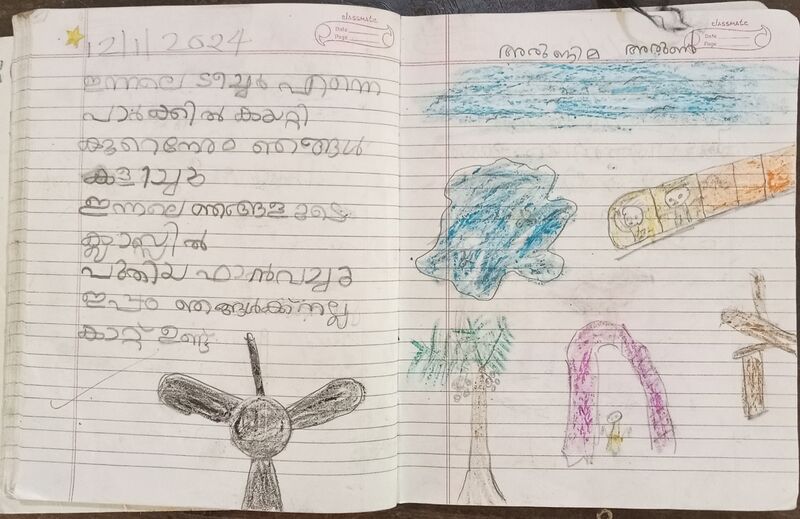 12/1/2024
ഇന്നലെ ടീച്ചർ എന്നെ
പാർക്കിൽ കയറ്റി
കുറെനേരം ഞങ്ങൾ
കളിച്ചു
ഇന്നലെ ഞങ്ങളുടെ
ക്ലാസ്സിൽ
പുതിയ ഫാൻവച്ചു
ഇപ്പം ഞങ്ങൾക്ക് നല്ല
കാറ്റ് ഉണ്ട്
classmate
Date
Page
അരുണിമ അരുൺ
classmate
Date
Page